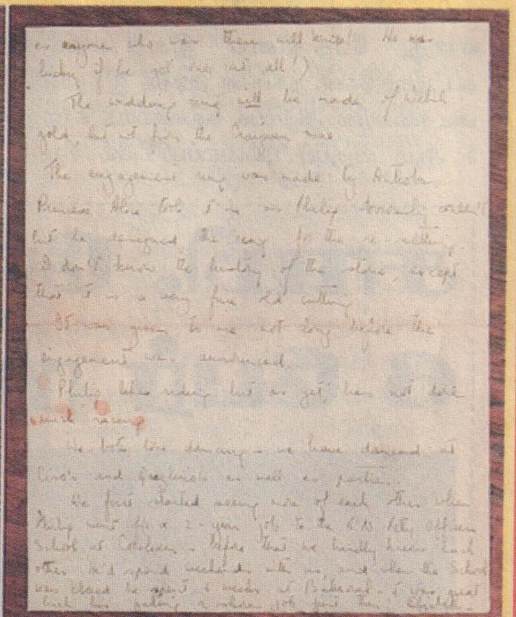 as anyone who was there will know! He was
lucky if he got one at all!)
The wedding ring will be made of Welsh
gold, but not from the Craigwen mine
The engagement ring was made by
Princess Alice took it in as Philip obviously couldn't
but he designed the ring for the re setting
I don't know the history of the stone, except
that it is a very fine old cutting
It was given to me not long before the
engagement was announced.
Philip likes riding but as yet has not done
much racing
We both love dancing – we have danced at
Ciro's and Quaglino's as well as parties.
We first started seeing more of each other when
Philip went for a 2-year job to the R.N. Petty Officers
School at Corsham – before that we hardly knew each
other. He'd spend weekends with us, and when the School
was closed he spent 6 weeks at Balmoral – it was great
luck his getting a job just then